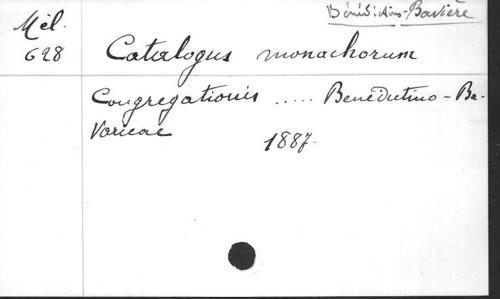 Bénédictins-Bavière
Mél.
628
Catalogus monachorum
Congregationis ..... Benedictino-Ba-
varicae
1887.